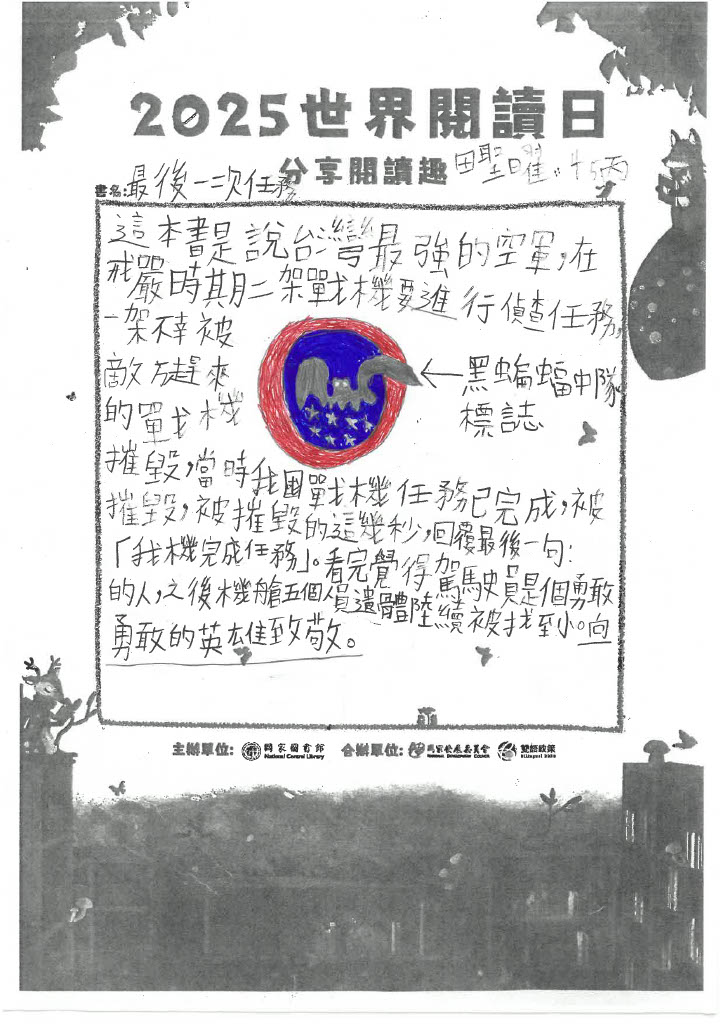 2025世界閱讀日
分享閱讀趣
田聖曜
書名:最後一次任務
這本書是說台灣最強的空軍,在
戒嚴時期二架戰機要進行偵查任務,
一架不幸被
敵方趕來
的戰機
摧毀,當時我國戰機任務已完成,被
摧毀,被摧毀的這幾秒,回覆最後一句:
「我機完成任務」。看完覺得駕駛員是個勇敢
的人,之後機艙五個人員遺體陸續被找到。向
勇敢的英雄致敬。
←黑蝙蝠中隊
標誌
主辦單位: 國家圖書館 National Central Library 合辦單位: 國家發展委員會 NATIONAL DEVELOPMENT COUNCIL 雙語政策 Bilingual 2030